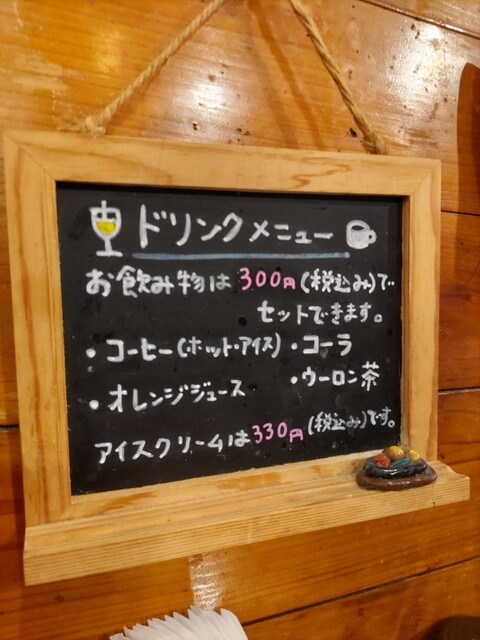 ドリンクメニュー
お飲み物は 300円(税込み)で
セットできます。
・コーヒー(ホット・アイス) ・コーラ
・オレンジジュース ・ウーロン茶
アイスクリームは330円(税込み)です。